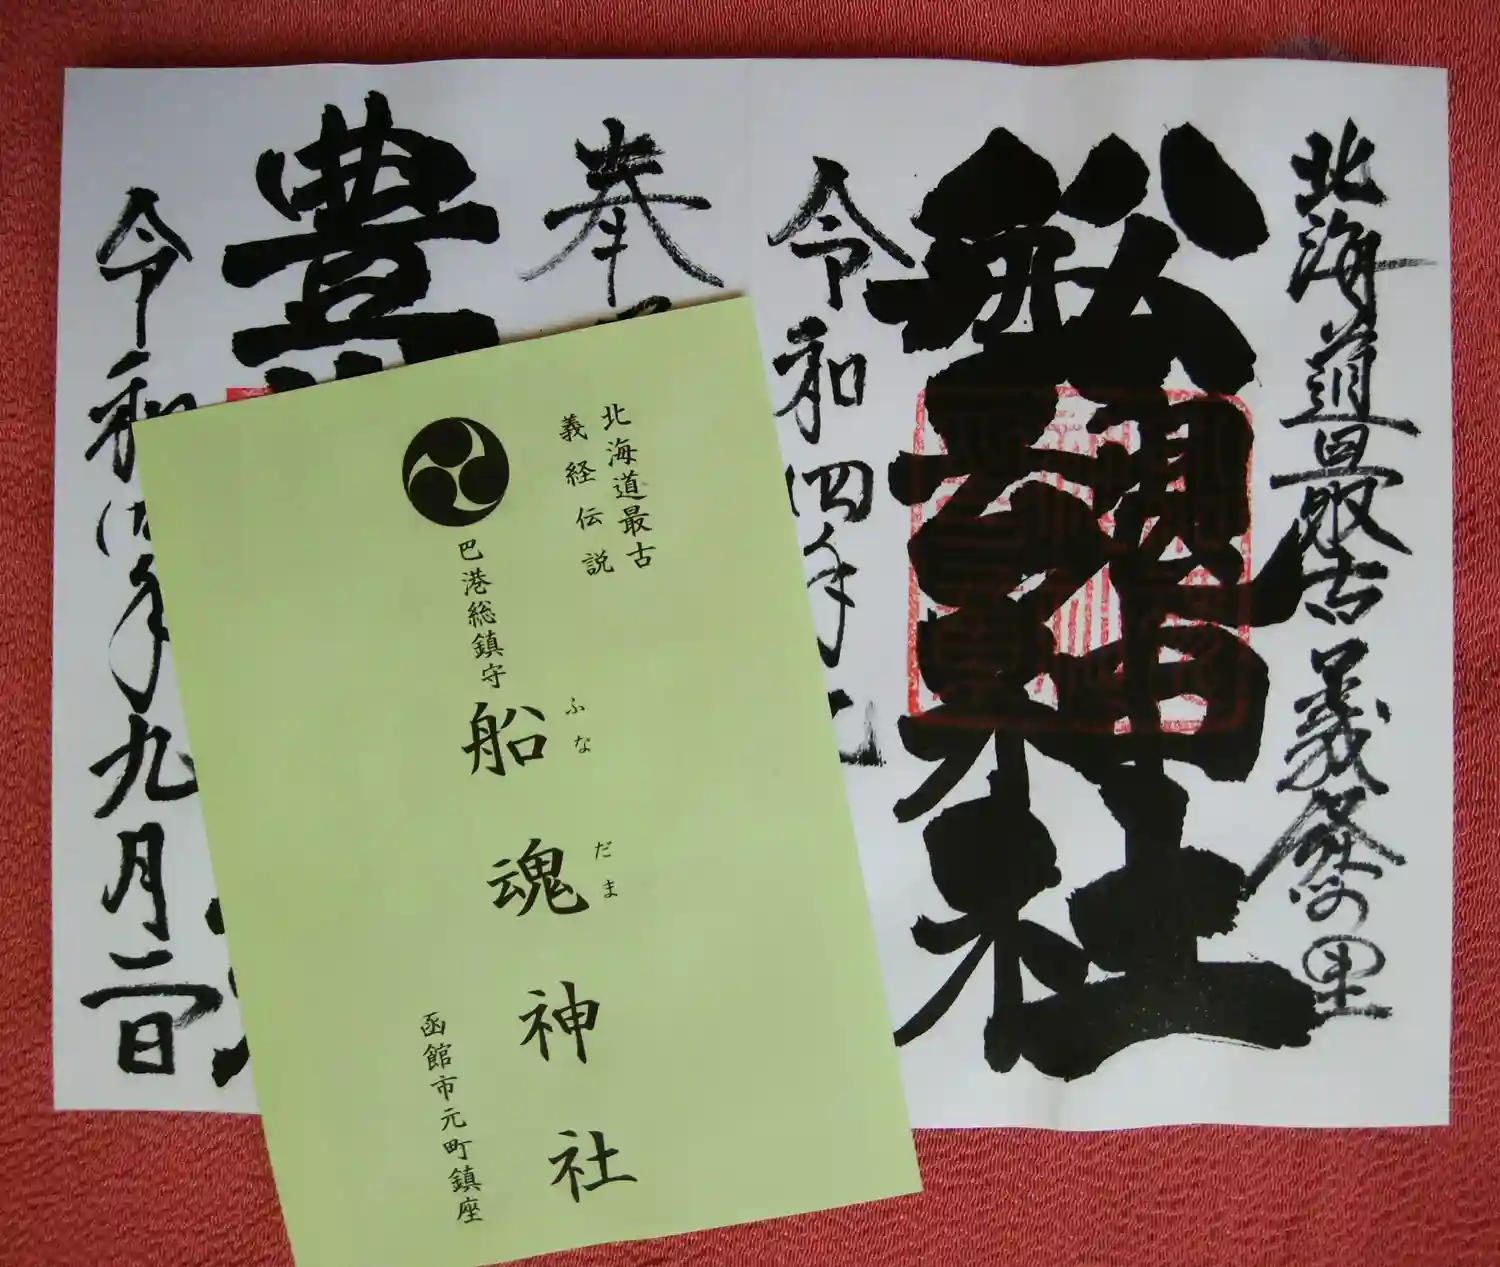 北海道最古義経の里
船魂神社
令和四年九
奉
豊
令和四年九月二日
北海道最古
義経伝説
巴港総鎮守
船魂神社
ふなだま
函館市元町鎮座